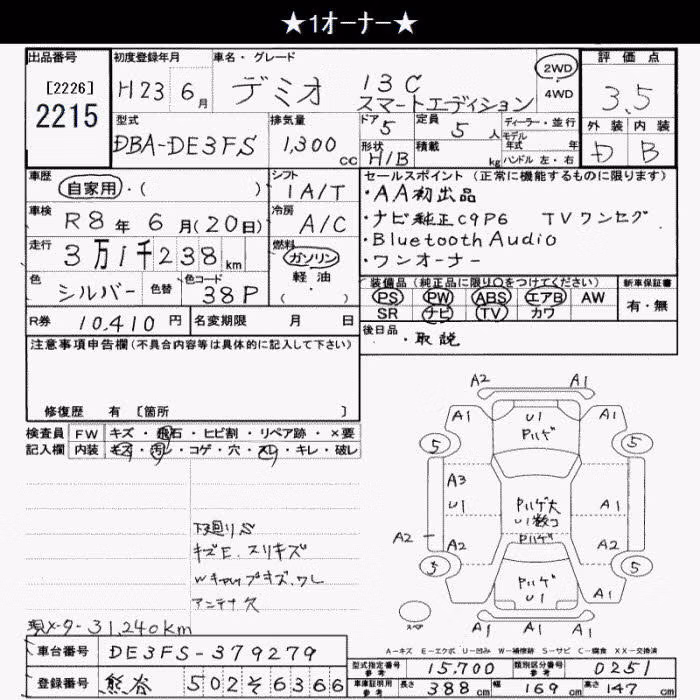 ★1オーナー★
出品番号 初度登録年月 車名・グレード 評価点
[2226] H23年 6月 デミオ 13C スマートエディション 2WD 4WD 3.5
2215 型式 排気量 ドア 定員 ディーラー・並行 外装 内装
DBA-DE3FS 1,300cc 5 5人 モデル年式 年
形状 H/B 積載 kg ハンドル 左・右 D B
車歴 自家用・( ) シフト 1A/T セールスポイント(正常に機能するものに限ります)
車検 R8年 6月(20日) 冷房 A/C ・AA初出品
・ナビ純正C9P6 TVワンセグ
走行 3万1千238km 燃料 ガソリン 軽油・( ) ・Bluetooth Audio
・ワンオーナー
色 シルバー 色替 色コード 38P 装備品(純正品に限り○をつけてください) 新車保証書
PS PW ABS エアB AW 有・無
SR ナビ TV カワ
R券 10.410円 名変期限 月 日 後日品 ・取説
注意事項申告欄(不具合内容等は具体的に記入して下さい)
修復歴 有 [箇所 ]
検査員 FW キズ・飛石・ヒビ割・リペア跡・×要
記入欄 内装 キズ・汚レ・コゲ・穴・スレ・キレ・破レ
A2 A1
A1 U1 A1
Pハゲ
5 5
A3
U1 Pハゲ大 A1
U1数コ
A2 A2 Pハゲ A2
5 Pハゲ 5
U1
A1 A1
スペア A1 A1 A1
下廻りS
キズE.スリキズ
Wキャップキズ.ワレ
アンテナ欠
現メーター31,240km
A－キズ E－エクボ U－凹み W－補修跡 S－サビ C－腐食 XX－交換済
車台番号 DE3FS-379279
型式指定番号 参考 15,700 類別区分番号 参考 0251
登録番号 熊谷 502そ6366
車庫証明用 参考 長さ 388cm 幅 169cm 高さ 147cm